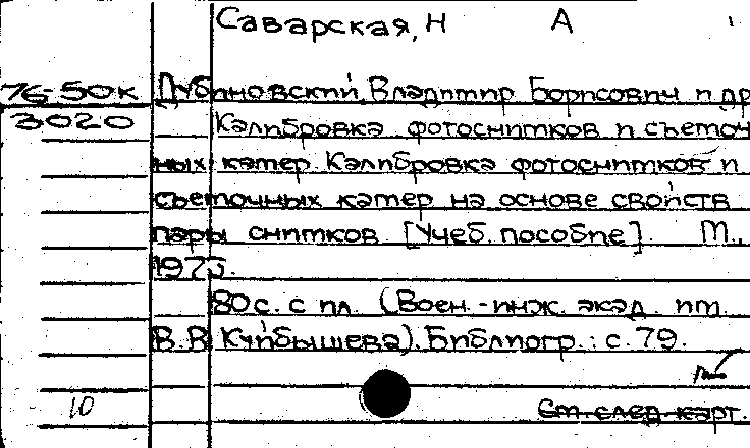 Саварская, Н А
76-50к Дубиновский Владимир Борисович и др
3020 Калибровка фотоснимков и съемоч
ных камер. Калибровка фотоснимков и
съемочных камер на основе свойств
пары снимков. [Учеб. пособие]. М.,
1975.
80 с. с ил. (Воен.-инж. акад. им.
В.В. Куйбышева). Библиогр.: с. 79.
10 См. след. карт.